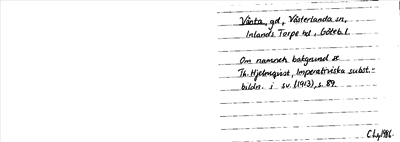 Vänta, gd, Västerlanda sn,
Inlands Torpe hd, Götebl.
Om namnets bakgrund se
Th. Hjelmqvist, Imperativiska subst.-
bildn. i sv. (1913), s. 89.